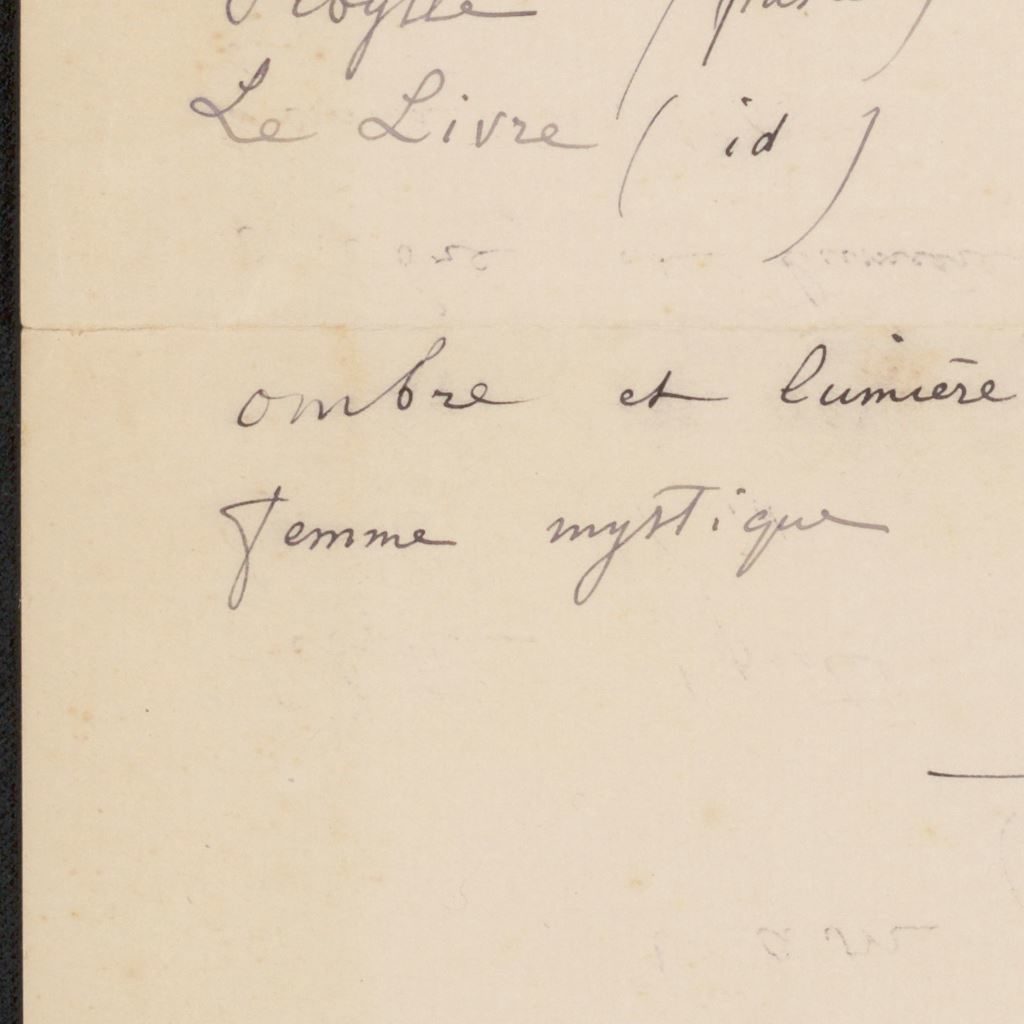 Le Livre ( id )
ombre et lumière
femme mystique